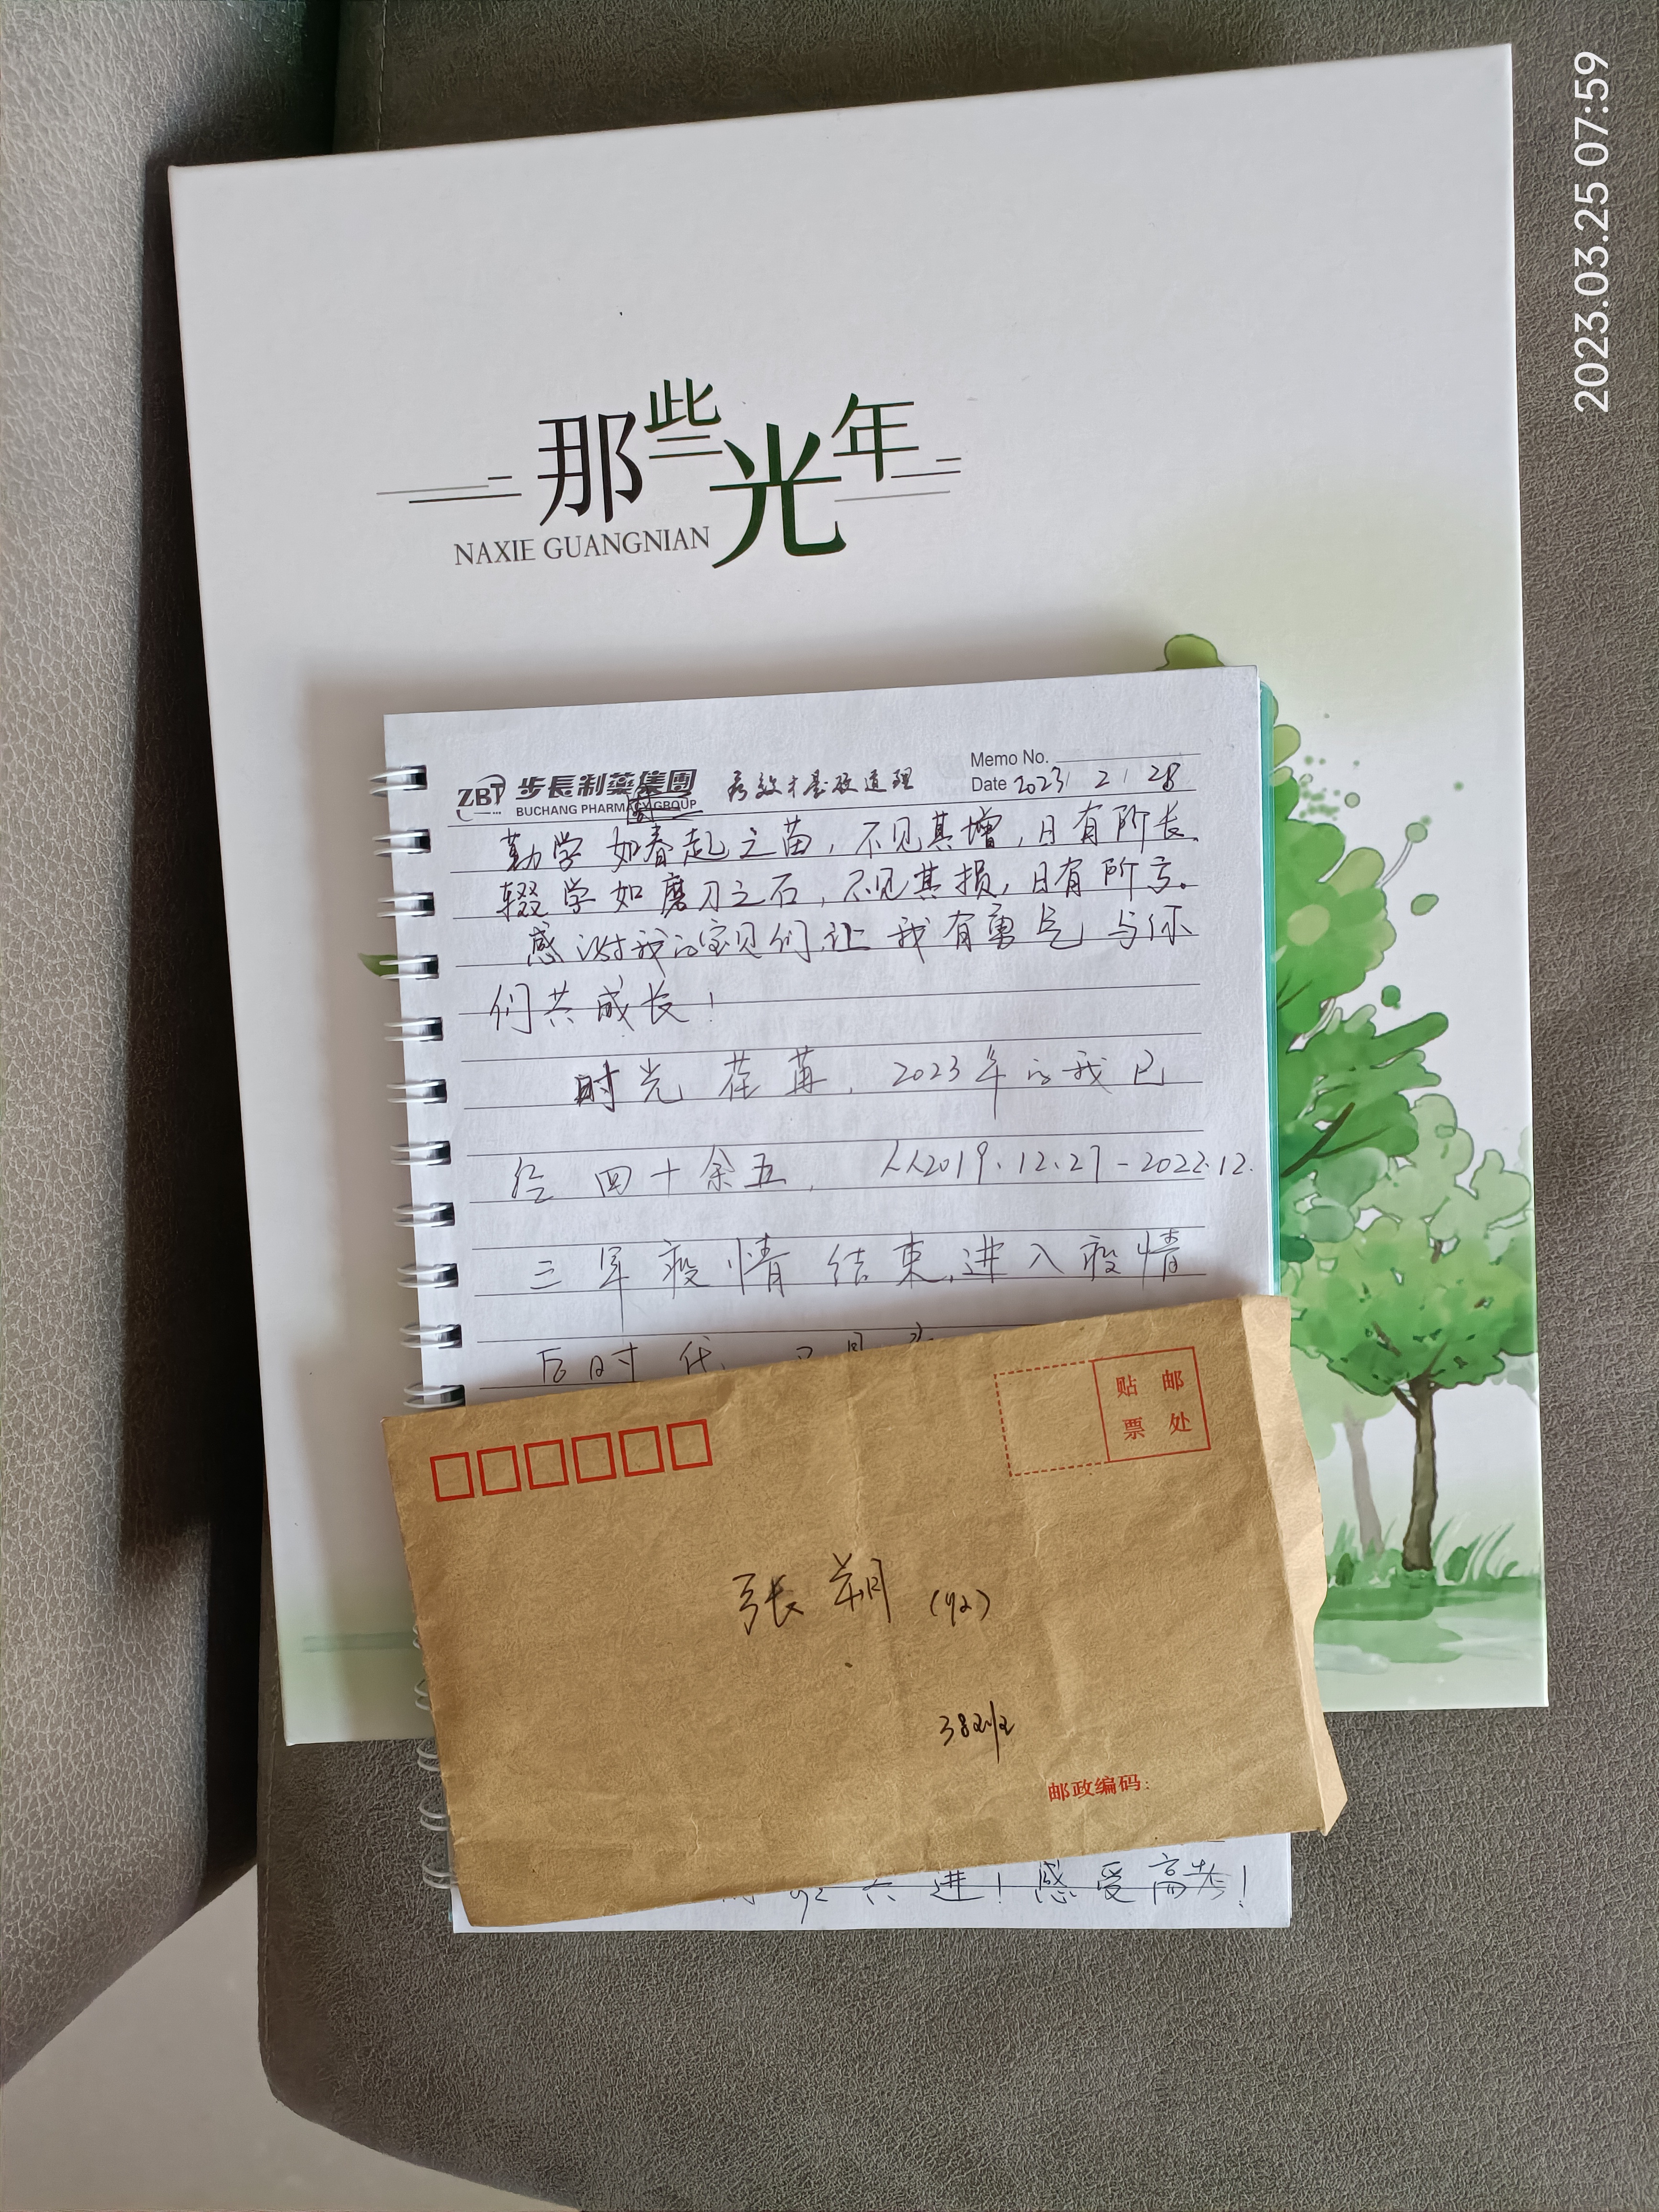 2023.03.25 07:59
那些光年
NAXIE GUANGNIAN
ZBT 步長制药集團 疗效才是硬道理 Memo No.
BUCHANG PHARMACY GROUP Date 2023/ 2 / 28
勤学如春起之苗,不见其增,日有所长
辍学如磨刀之石,不见其损,日有所亏。
感谢我的宝贝们让我有勇气与你
们共成长!
时光荏苒,2023年的我已
经四十余五, 从2019.12.27-2022.12.
三年疫情结束,进入疫情
后时代
贴邮
票处
张朔 (92)
邮政编码:
92 共进!感受高考!